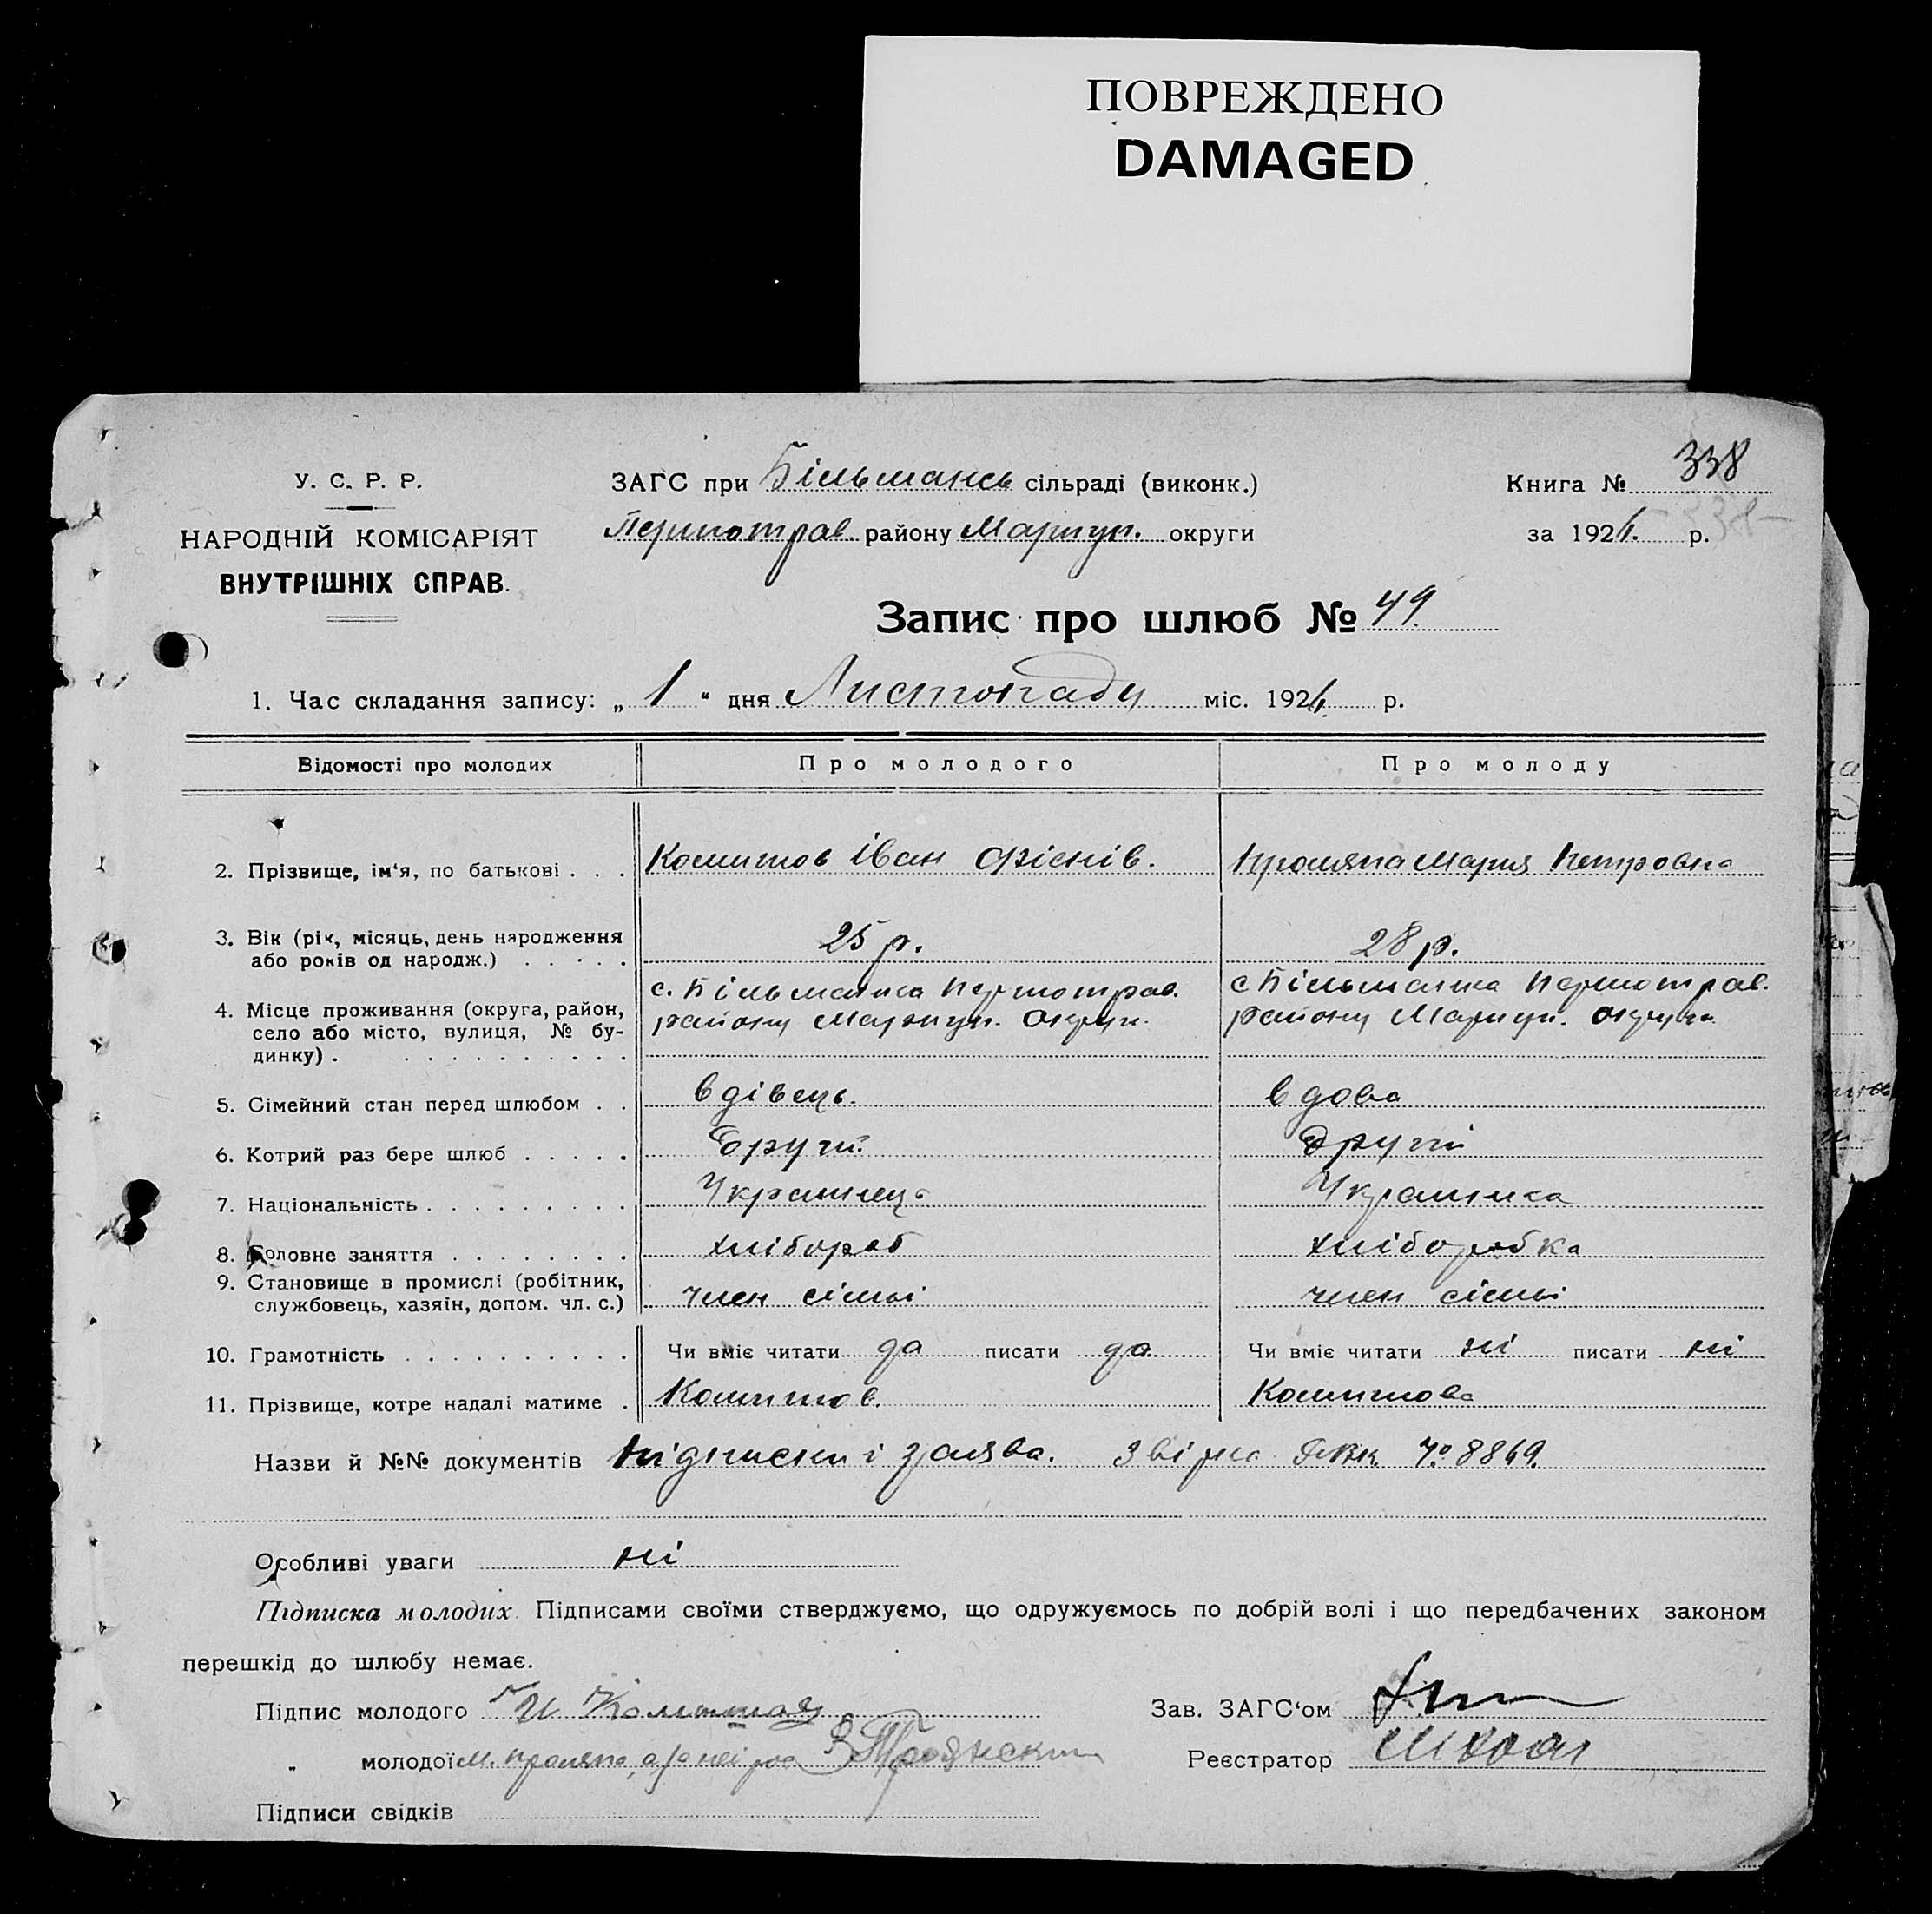 ПОВРЕЖДЕНО
DAMAGED
338
У. С. Р. Р.
НАРОДНІЙ КОМІСАРІЯТ
ВНУТРІШНІХ СПРАВ.
ЗАГС при Більмансь сільраді (виконк.)
Першотрав. району Маріуп. округи
Книга №
за 192 р.
Запис про шлюб № 49.
1. Час складання запису: „ 1 “ дня Листопаду міс. 192 р.
Відомості про молодих Про молодого Про молоду
2. Прізвище, ім'я, по батькові . . . Іван Мария Петровна
3. Вік (рік, місяць, день народження
або років од народж.) . . . . . 25 р. 28 р.
4. Місце проживання (округа, район,
село або місто, вулиця, № бу-
динку) . . . . . . . . . . .
с. Більманка Першотрав. с Більманка Першотрав.
району Маріуп. Округи. району Маріуп. округи
5. Сімейний стан перед шлюбом . . вдівець. вдова
6. Котрий раз бере шлюб . . . . . Другий. Другий
7. Національність . . . . . . . . . Українець Українка
8. Головне заняття . . . . . . . . хлібороб хліборобка
9. Становище в промислі (робітник,
службовець, хазяїн, допом. чл. с.) член сімьі член сімьі
10. Грамотність . . . . . . . . . . Чи вміє читати да писати да Чи вміє читати ні писати ні
11. Прізвище, котре надалі матиме .
Назви й №№ документів Підписки і заява.
Особливі уваги ні
Підписка молодих. Підписами своїми стверджуємо, що одружуємось по добрій волі і що передбачених законом
перешкід до шлюбу немає.
Підпис молодого Зав. ЗАГС'ом
„ молодої Реєстратор
Підписи свідків